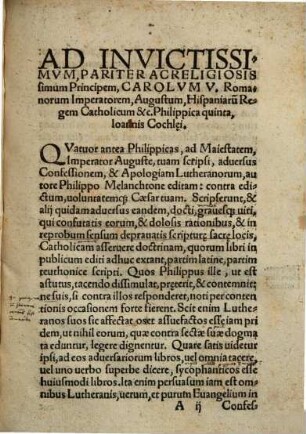 AD INVICTISSI-
MVM, PARITER AC RELIGIOSIS
simum Principem, CAROLVM V. Roma-
norum Imperatorem, Augustum, Hispaniarũ Re
gem Catholicum &c. Philippica quinta,
Ioannis Cochlęi.
QVatuor antea Philippicas, ad Maiestatem,
Imperator Auguste, tuam scripsi, aduersus
Confessionem, & Apologiam Lutheranorum, au
tore Philippo Melanchtone editam: contra edi
ctum, uoluntatemq; Cæsar tuam. Scripserunt, &
alij quidam aduersus eandem, docti, grauesq; uiri,
qui confutatis eorum, & dolosis rationibus, & in
reprobum sensum deprauatis scripturę sacrę locis,
Catholicam asseruere doctrinam, quorum libri in
publicum editi adhuc extant, partim latine, partim
teuthonice scripti. Quos Philippus ille, ut est
astutus, tacendo dissimulat, pręterit, & contemnit;
ne suis, si contra illos responderet, noti per conten
tionis occasionem forte fierent. Scit enim Luthe-
ranos suos sic affectatos, et assuefactos esse iam pri
dem, ut nihil eorum, quæ contra sectæ suæ dogma
ta eduntur, legere dignentur. Quare satis uidetur
ipsi, ad eos aduersariorum libros, uel omnia tacere,
uel uno uerbo superbe dicere, sycophanticos esse
huiusmodi libros. Ita enim persuasum iam est om
nibus Lutheranis, uerum, et purum Euangelium in
A ij Confes